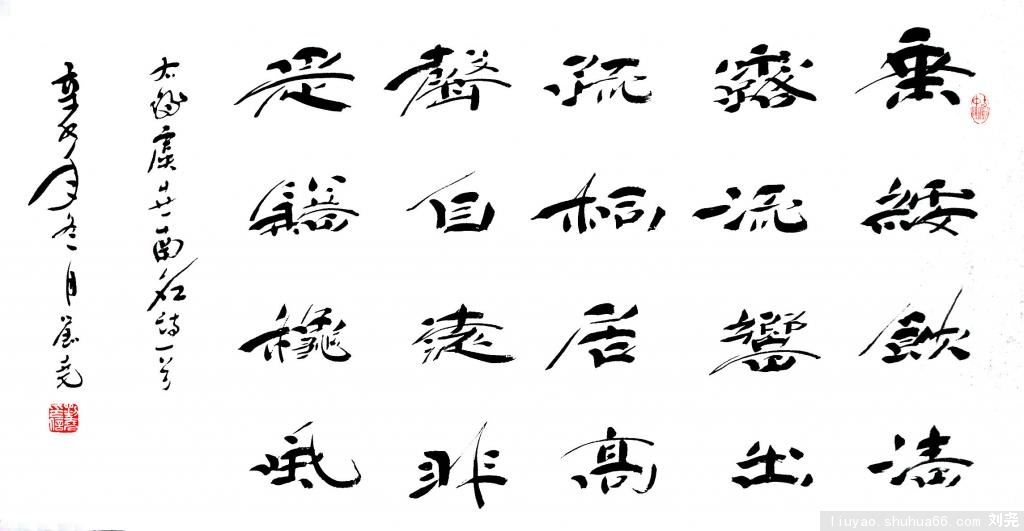 垂緌飲清
露流響出
疏桐居高
聲自遠非
是藉穐風
右錄虞世南名詩一首
年冬月劉堯
liuyao.shuhua66.com 刘尧